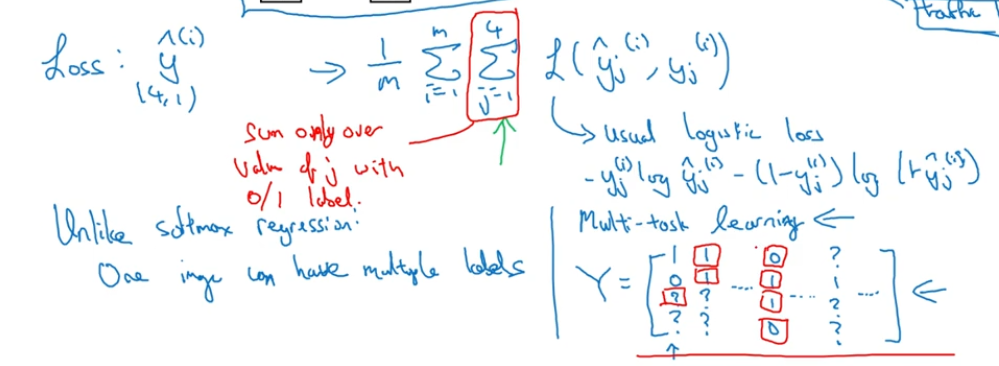 Loss: ŷ^(i) (4,1) → 1/m ∑_{i=1}^{m} ∑_{j=1}^{4} L(ŷ_j^(i), y_j^(i))
Sum only over
value of j with
0/1 label.
→ usual logistic loss
- y_j^(i) log ŷ_j^(i) - (1-y_j^(i)) log (1-ŷ_j^(i))
Unlike softmax regression:
One image can have multiple labels
Multi-task learning ←
Y = [
1 1 0 ?
0 1 ..... 1 1
? ? 1 .... ? ...
? ? 0 ?
] ←